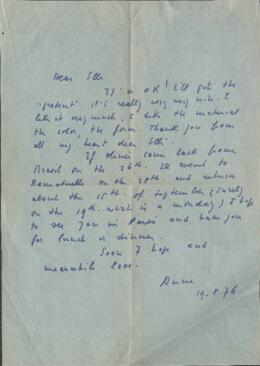 Dear Elli.
It's OK! I'll got the
"present" it's really very very nice. I
like it very much, I like the material
the color, the form. Thank you from
all my heart dear Elli.
If Oliver come back from
Brasil on the 26th. We went to
Ramatuelle on the 28th. and return
about the 15th. of September (surely
on the 19th. which is a monday) I hope
to see you in Paris and have you
for lunch or dinner.
Soon I hope and
meanwhile love.
Anne
19.8.76